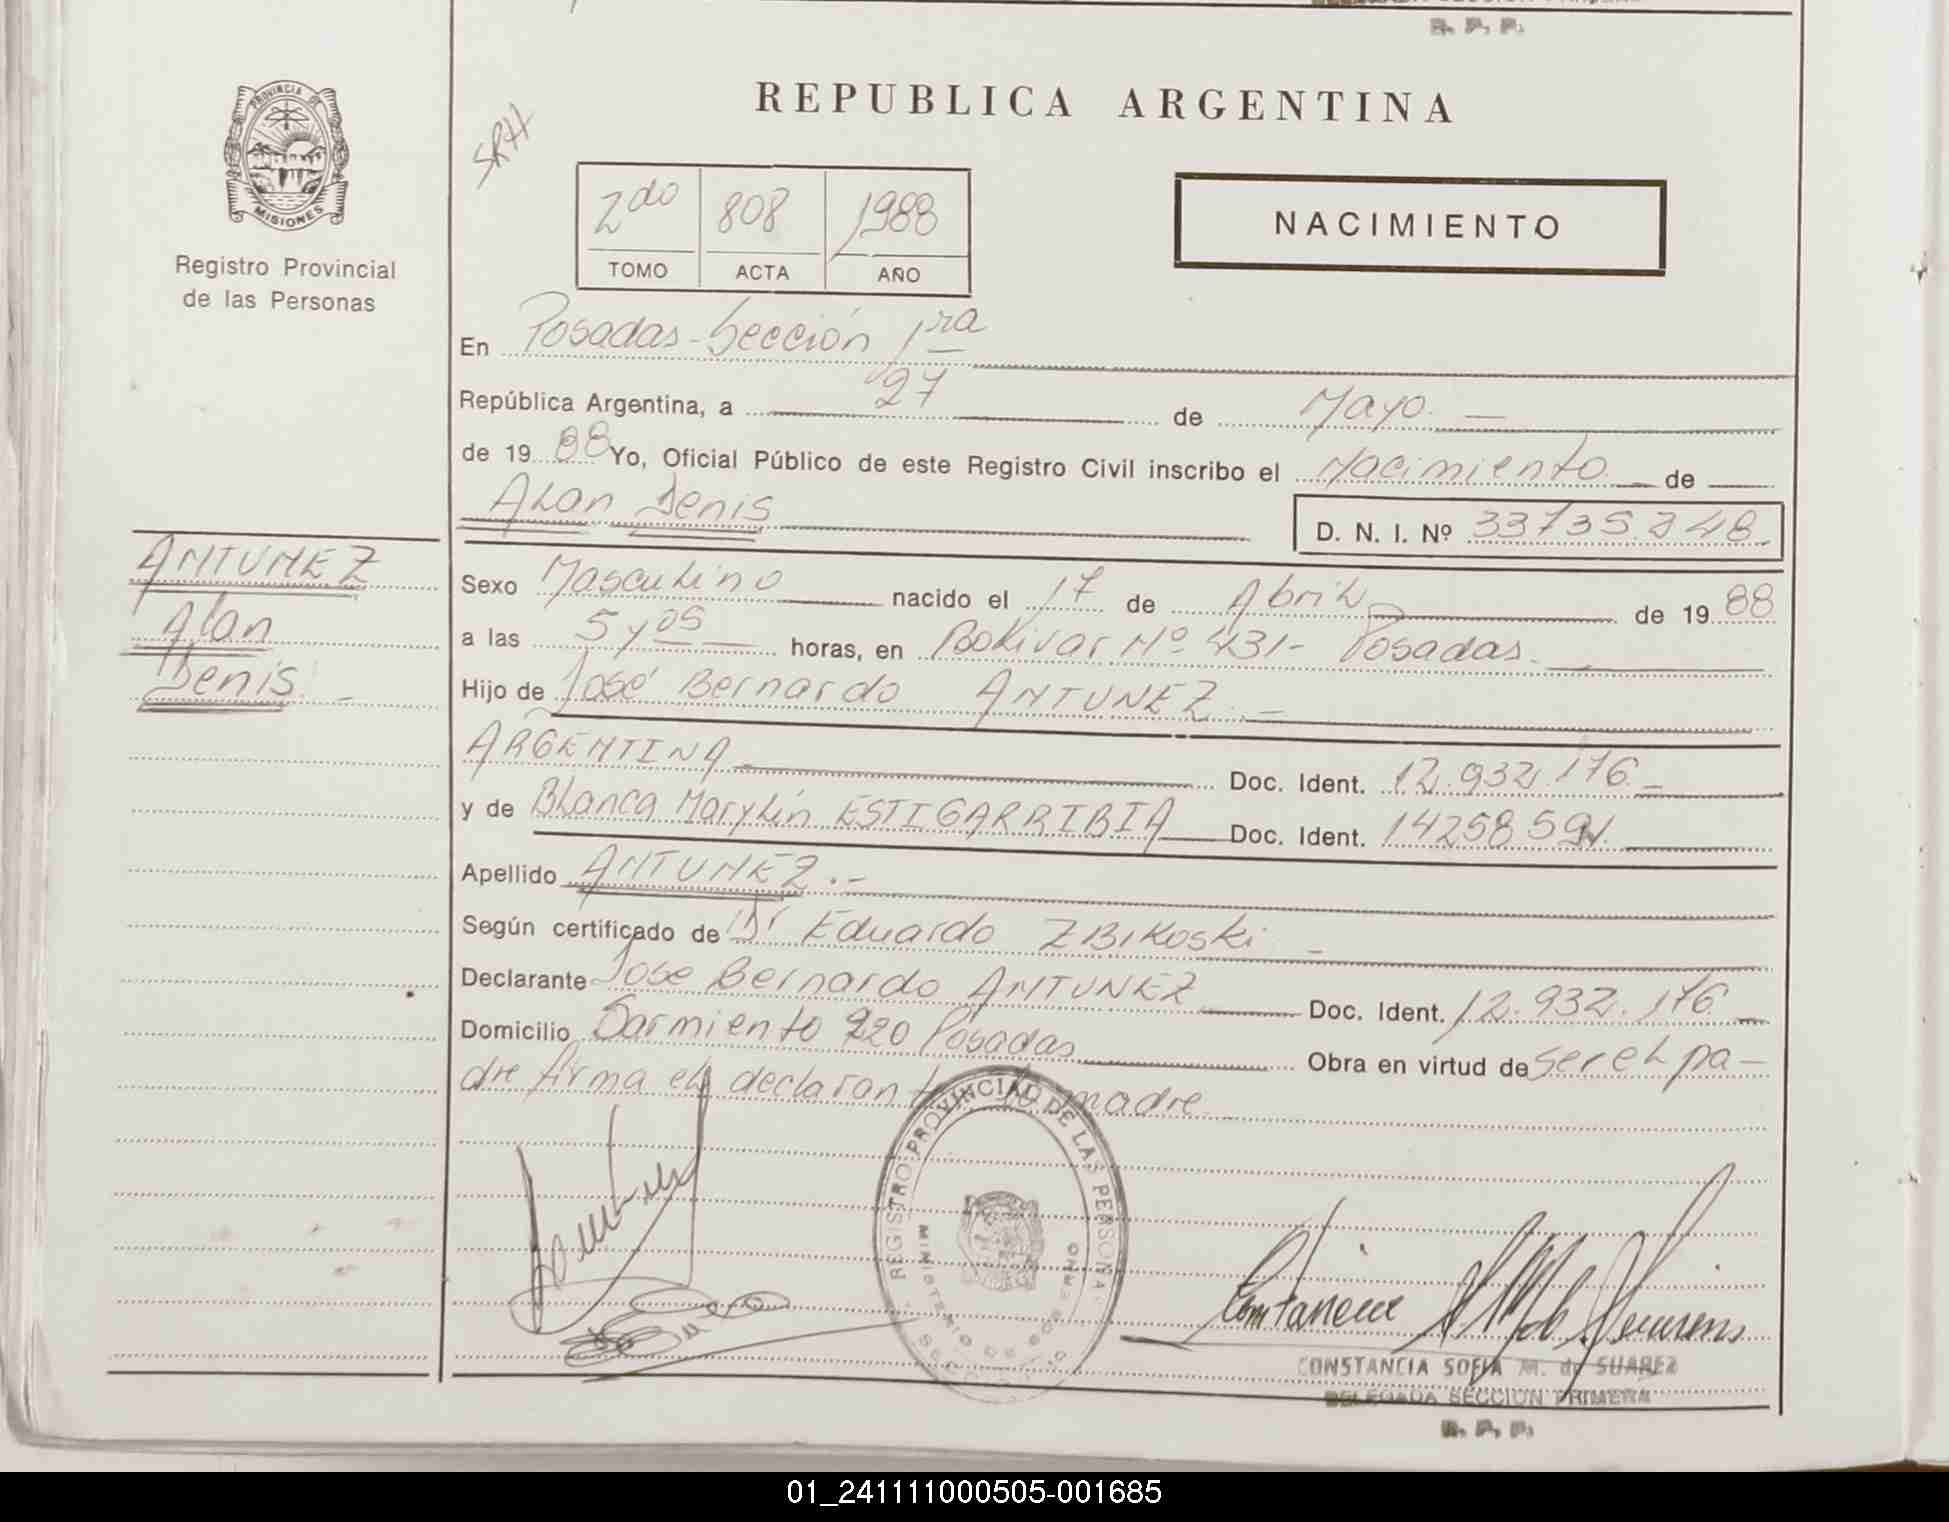 R. P. P.
PROVINCIA DE
MISIONES
Registro Provincial
de las Personas
REPUBLICA ARGENTINA
SRH
2do 808 1988
TOMO ACTA AÑO
NACIMIENTO
En Posadas - Sección 1ra
República Argentina, a 27 de Mayo.
de 19 88 Yo, Oficial Público de este Registro Civil inscribo el Nacimiento de
Alan Denis D. N. I. Nº 33735.248
ANTUNEZ
Alan
Denis
Sexo Masculino nacido el 17 de Abril de 19 88
a las 5 y 05 horas, en Bolivar Nº 431 - Posadas.
Hijo de José Bernardo ANTUNEZ.
ARGENTINA Doc. Ident. 12.932.176
y de Blanca Marylin ESTIGARRIBIA Doc. Ident. 14258591.
Apellido ANTUNEZ.-
Según certificado de Dr Eduardo ZBIKoski
Declarante Jose Bernardo ANTUNEZ Doc. Ident. 12.932.176
Domicilio Sarmiento 220 Posadas Obra en virtud de ser el pa-
dre firma el declarante madre
REGISTRO PROVINCIAL DE LAS PERSONAS
MINISTERIO DE GOBIERNO
CONSTANCIA SOFIA M. de SUAREZ
DELEGADA SECCION PRIMERA
R. P. P.
01_241111000505-001685